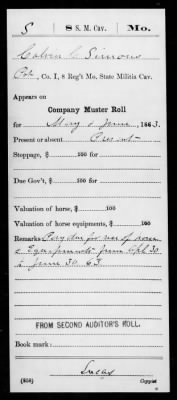 S 8 S. M. Cav. Mo.
Calvin C. Simons
Pvt, Co. I, 8 Reg't Mo. State Militia Cav.
Appears on
Company Muster Roll
for May & June, 1863.
Present or absent Present
Stoppage, $ 100 for
Due Gov't, $ 100 for
Valuation of horse, $ 100
Valuation of horse equipments, $ 100
Remarks: Pay due for use of horse
& Equipments from Apl 30
to June 30, 63.
FROM SECOND AUDITOR'S ROLL.
Book mark:
Lucas
(858) Copyist.